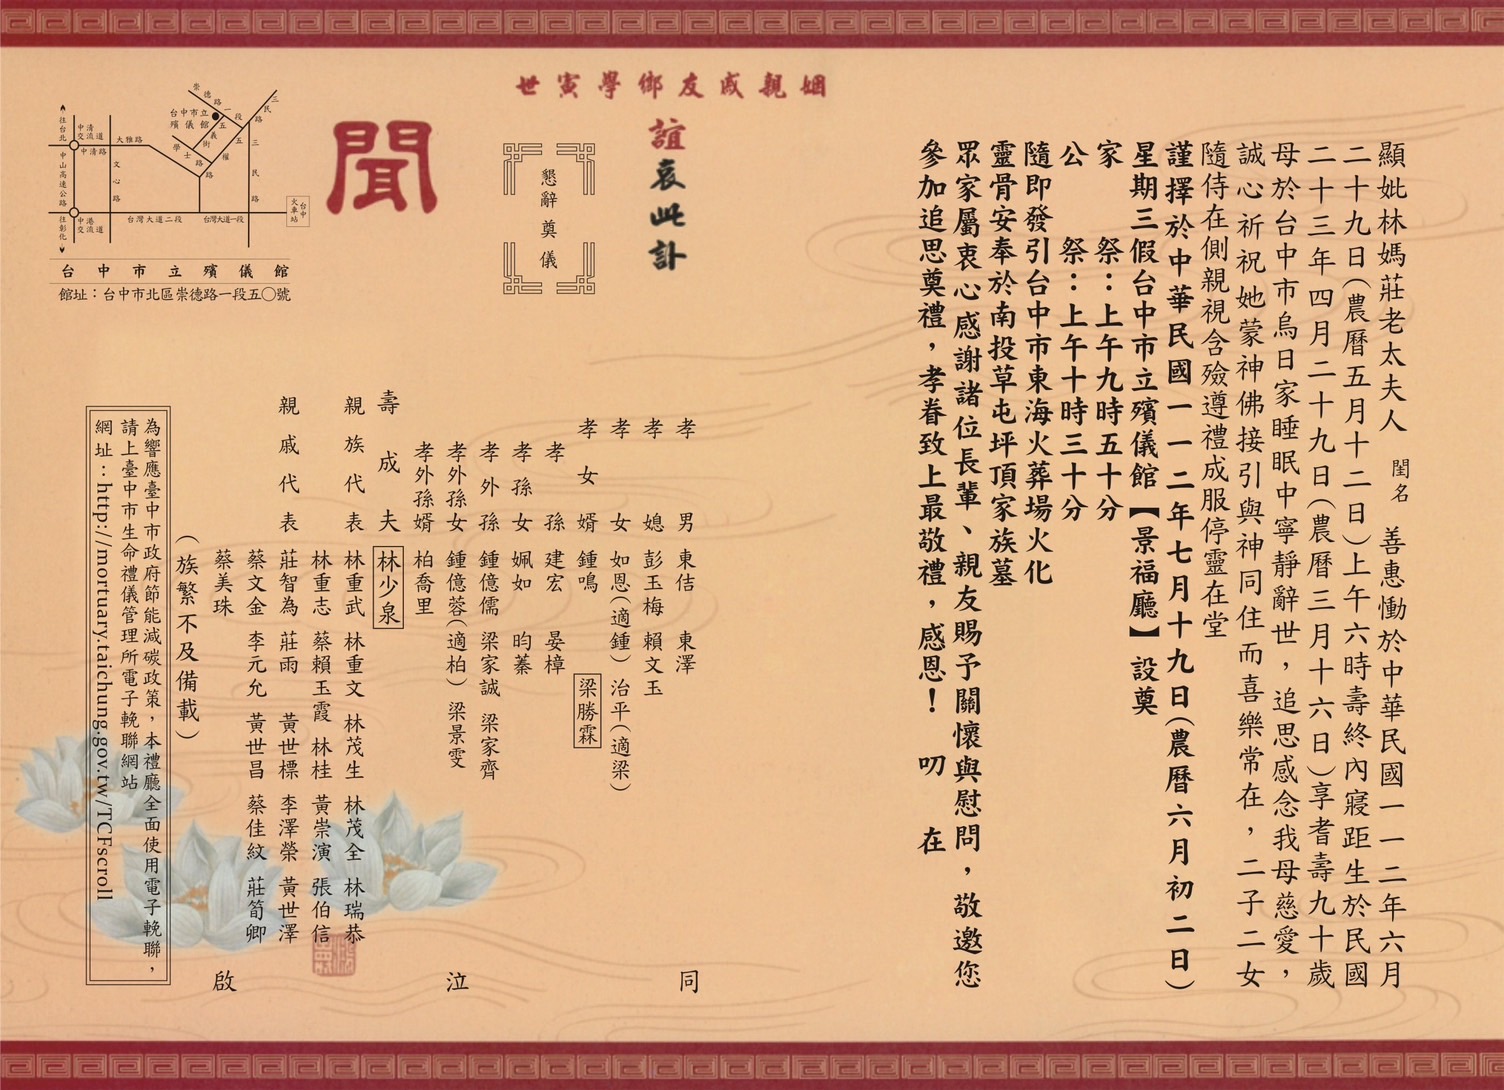 顯妣林媽莊老太夫人 閨名 善惠慟於中華民國一一二年六月
二十九日(農曆五月十二日)上午六時壽終內寢距生於民國
二十三年四月二十九日(農曆三月十六日)享耆壽九十歲
母於台中市烏日家睡眠中寧靜辭世，追思感念我母慈愛，
誠心祈祝她蒙神佛接引與神同住而喜樂常在，二子二女
隨侍在側親視含殮遵禮成服停靈在堂
謹擇於中華民國一一二年七月十九日(農曆六月初二日)
星期三假台中市立殯儀館【景福廳】設奠
家 祭：上午九時五十分
公 祭：上午十時三十分
隨即發引台中市東海火葬場火化
靈骨安奉於南投草屯坪頂家族墓
眾家屬衷心感謝諸位長輩、親友賜予關懷與慰問，敬邀您
參加追思奠禮，孝眷致上最敬禮，感恩！ 叨 在
姻親戚友鄉學寅世
誼哀此訃
懇辭奠儀
聞
孝男 東佶 東澤
孝媳 彭玉梅 賴文玉
孝女 如恩(適鍾) 治平(適梁)
孝女婿 鍾鳴 梁勝霖
孝孫 建宏 晏樟
孝孫女 姵如 昀蓁
孝外孫 鍾億儒 梁家誠 梁家齊
孝外孫女 鍾億蓉(適柏) 梁景雯
孝外孫婿 柏喬里
壽成夫 林少泉
親族代表 林重武 林重文 林茂生 林茂全 林瑞恭
林重志 蔡賴玉霞 林桂 黃崇演 張伯信
親戚代表 莊智為 莊雨 黃世標 李澤榮 黃世澤
蔡文金 李元允 黃世昌 蔡佳紋 莊筍卿
蔡美珠
同 泣 啟
(族繁不及備載)
為響應臺中市政府節能減碳政策，本禮廳全面使用電子輓聯，
請上臺中市生命禮儀管理所電子輓聯網站
網址：http://mortuary.taichung.gov.tw/TCFscroll
往台北
中清交流道
中清路
大雅路
文心路
中山高速公路
往彰化
中港交流道
台灣大道二段
台灣大道一段
台中火車站
台中市立殯儀館
崇德路一段
三民路
五義街
學士路
五權路
三民路
台中市立殯儀館
館址：台中市北區崇德路一段五〇號